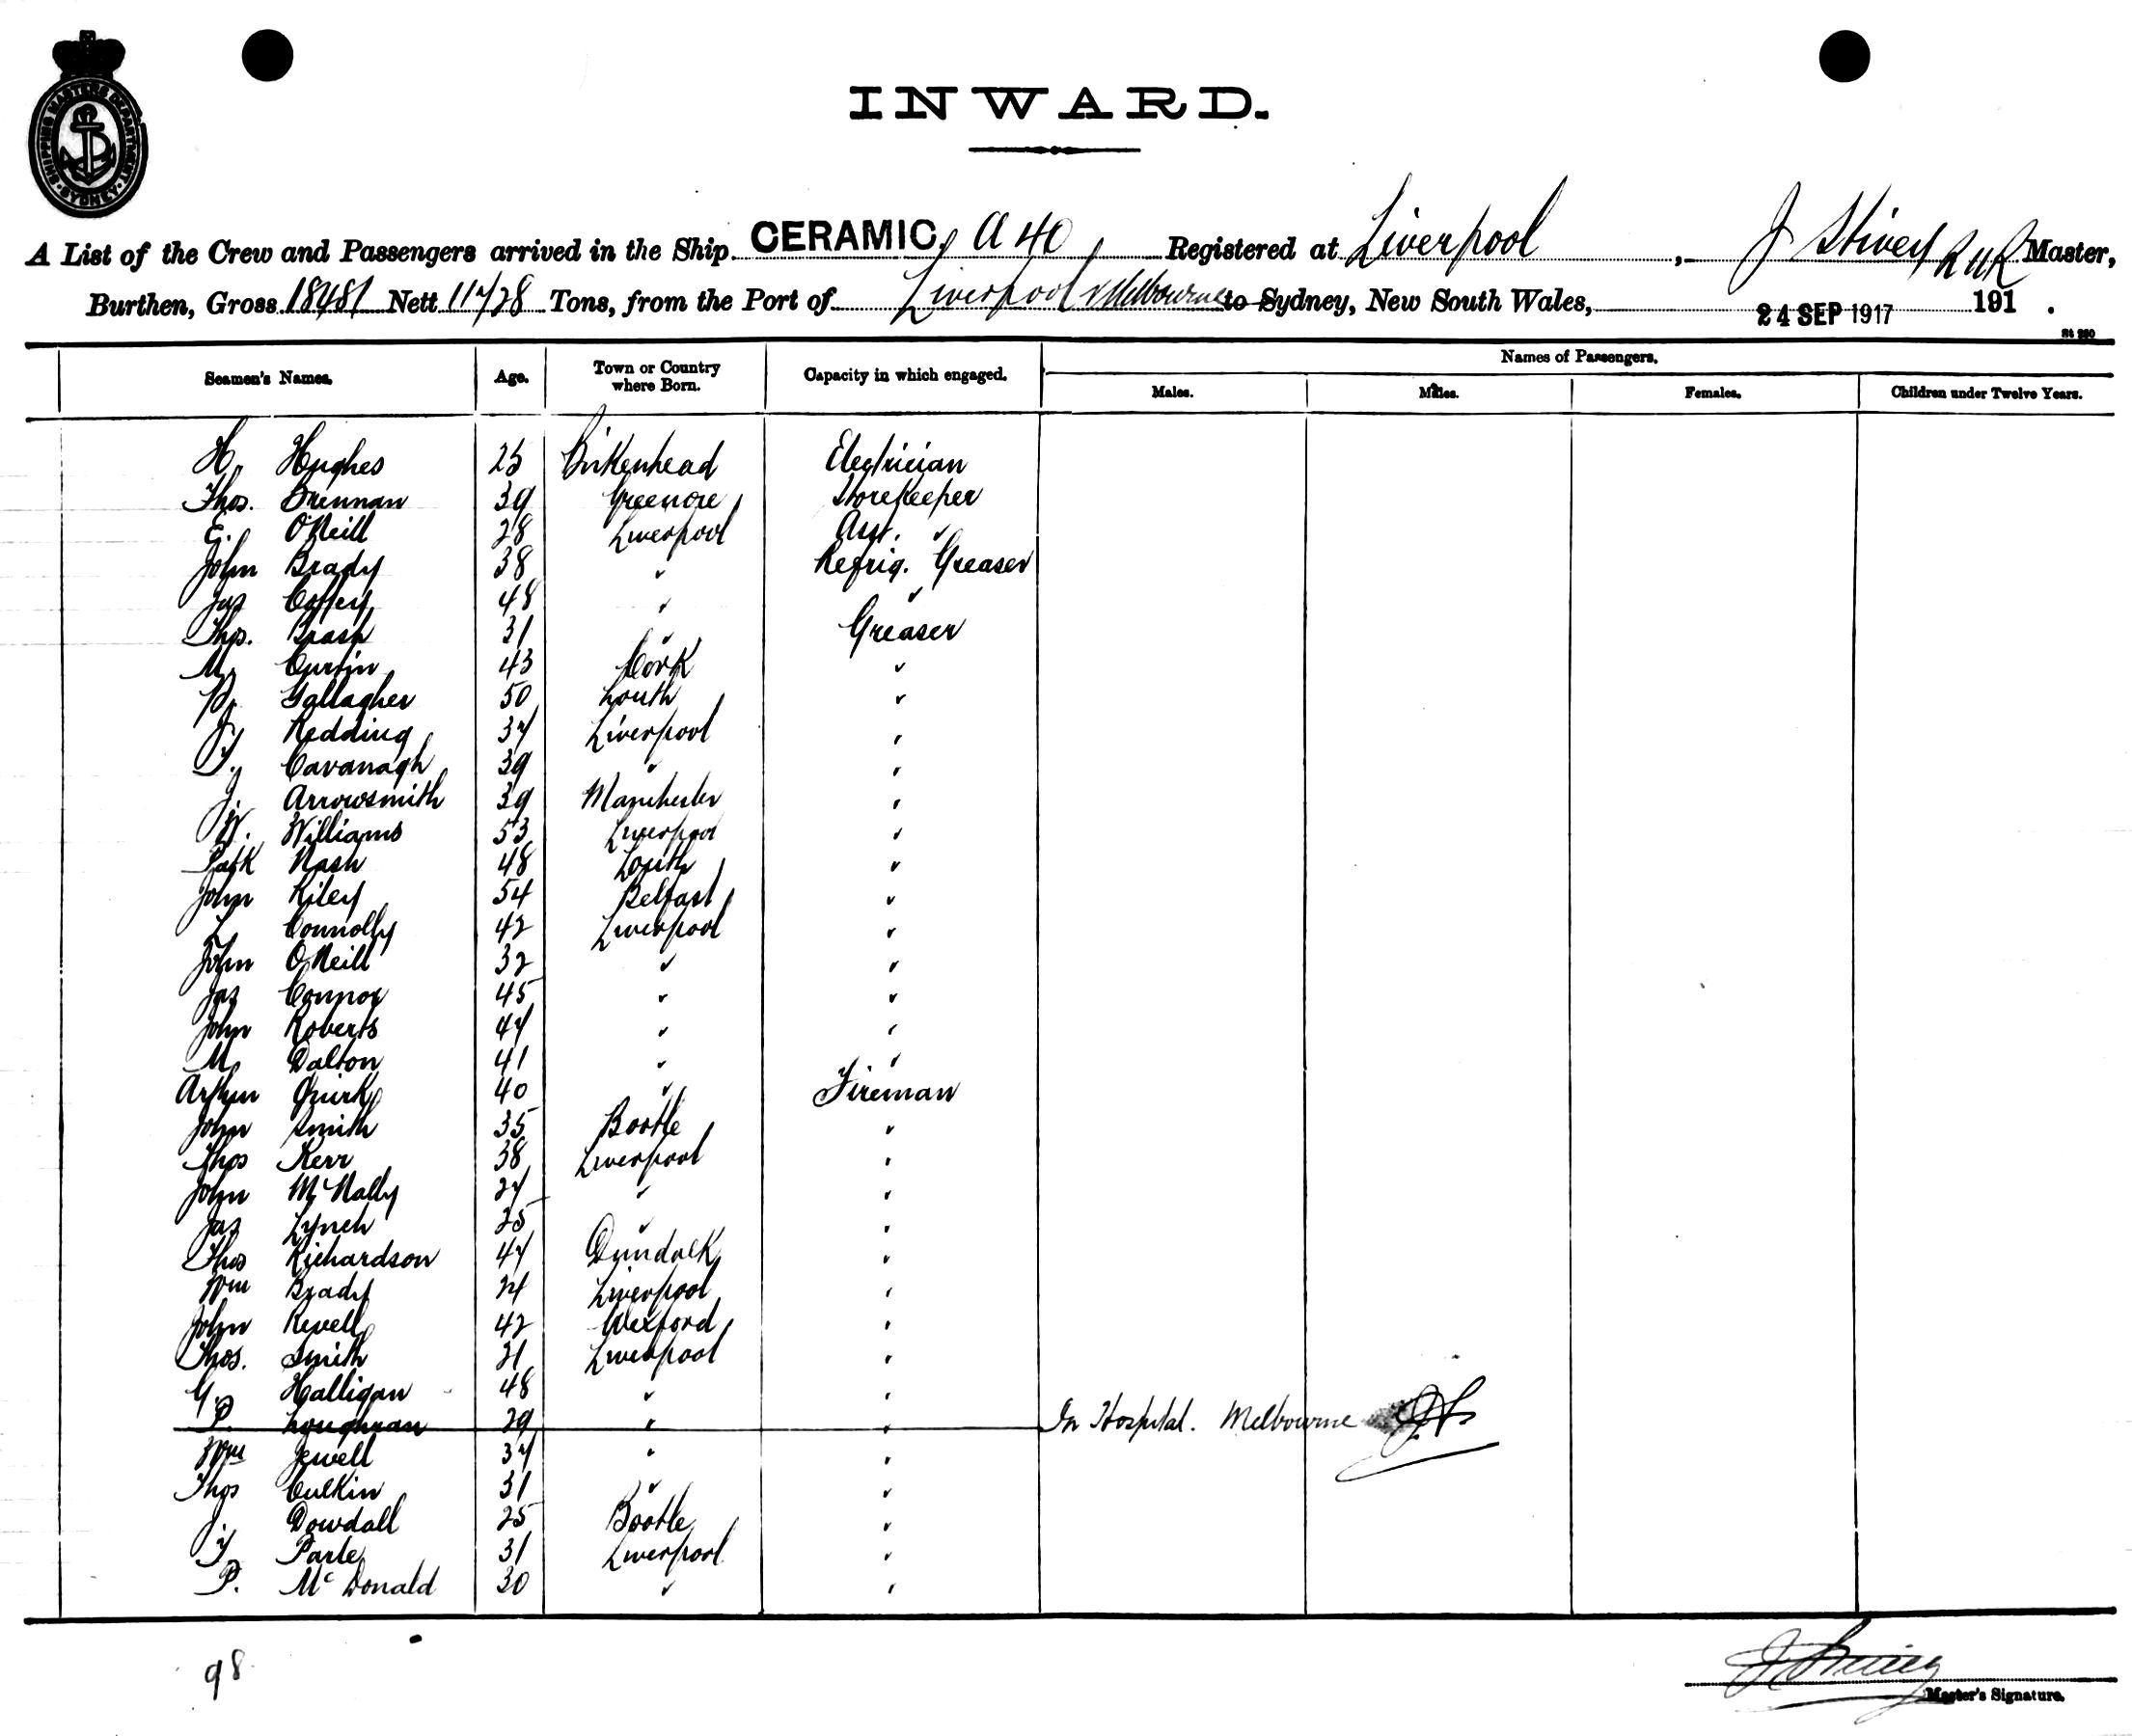 SHIPPING MASTERS DEPARTMENT
SYDNEY
INWARD.
A List of the Crew and Passengers arrived in the Ship CERAMIC. A 40 Registered at Liverpool, J Stivey RNR Master,
Burthen, Gross 18481 Nett 11728 Tons, from the Port of Liverpool v Melbourne to Sydney, New South Wales, 24 SEP 1917 191 .
Seamen's Names. Age. Town or Country where Born. Capacity in which engaged. Names of Passengers.
Males. Males. Females. Children under Twelve Years.
H. Hughes 25 Birkenhead Electrician
Thos. Brennan 39 Greenore Storekeeper
E. O'Neill 28 Liverpool Asst. "
John Brady 38 " Refrig. Greaser
Jas Coffey 48 " "
Thos. Brash 31 " Greaser
M. Curtin 43 Cork "
P. Gallagher 50 Louth "
J. Redding 37 Liverpool "
J. Cavanagh 39 " "
J. Arrowsmith 39 Manchester "
W. Williams 53 Liverpool "
Patk Nash 48 Louth "
John Kiley 54 Belfast "
L Connolly 42 Liverpool "
John O'Neill 32 " "
Jas Connor 45 " "
John Roberts 47 " "
M. Dalton 41 " "
Arthur Quirk 40 " Fireman
John Smith 35 Bootle "
Thos Kerr 38 Liverpool "
John McNally 27 " "
Jas Lynch 25 " "
Thos Richardson 47 Dundalk "
Wm Brady 24 Liverpool "
John Revell 42 Wexford "
Thos. Smith 21 Liverpool "
G. Halligan 48 " "
P. Loughran 29 " " In Hospital. Melbourne
Wm Jewell 37 " "
Thos Culkin 31 " "
J. Dowdall 25 Bootle "
J. Parle 31 Liverpool "
P. McDonald 30 " "
98
J Stivey
Master's Signature.